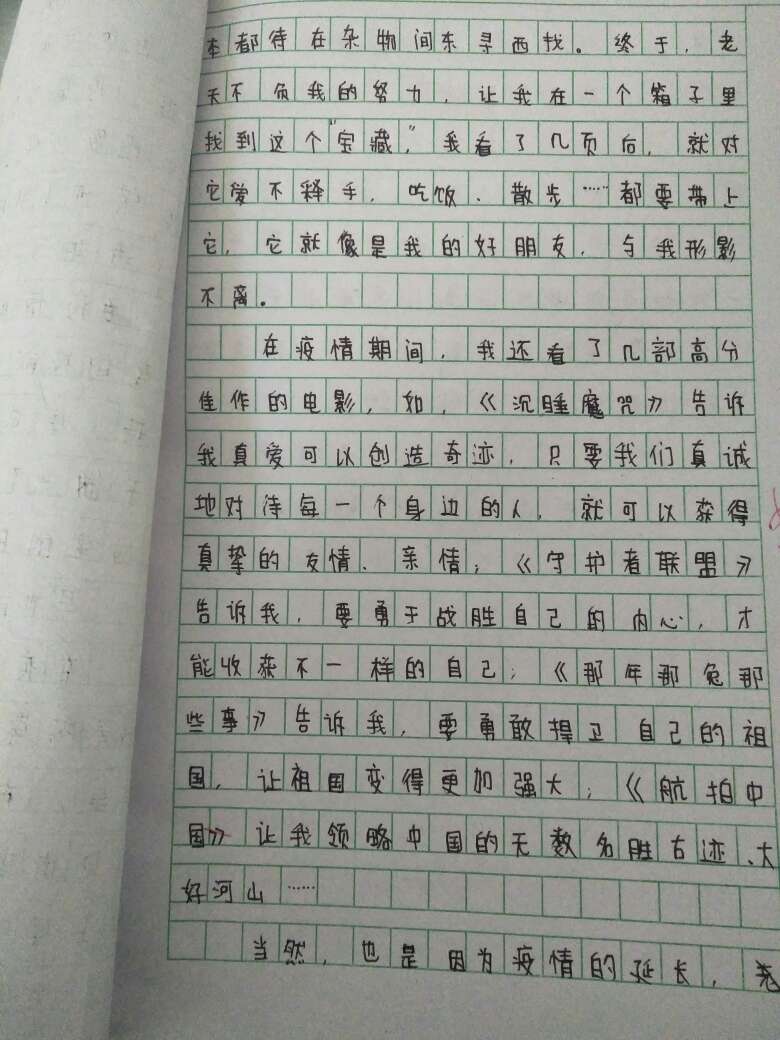 本都待在杂物间东寻西找。终于，老
天不负我的努力，让我在一个箱子里
找到这个"宝藏"，我看了几页后，就对
它爱不释手，吃饭、散步……都要带上
它，它就像是我的好朋友，与我形影
不离。
在疫情期间，我还看了几部高分
佳作的电影，如，《沉睡魔咒》告诉
我真爱可以创造奇迹，只要我们真诚
地对待每一个身边的人，就可以获得
真挚的友情、亲情；《守护者联盟》
告诉我，要勇于战胜自己的内心，才
能收获不一样的自己；《那年那兔那
些事》告诉我，要勇敢捍卫自己的祖
国，让祖国变得更加强大；《航拍中
国》让我领略中国的无数名胜古迹、大
好河山……
当然，也是因为疫情的延长，老